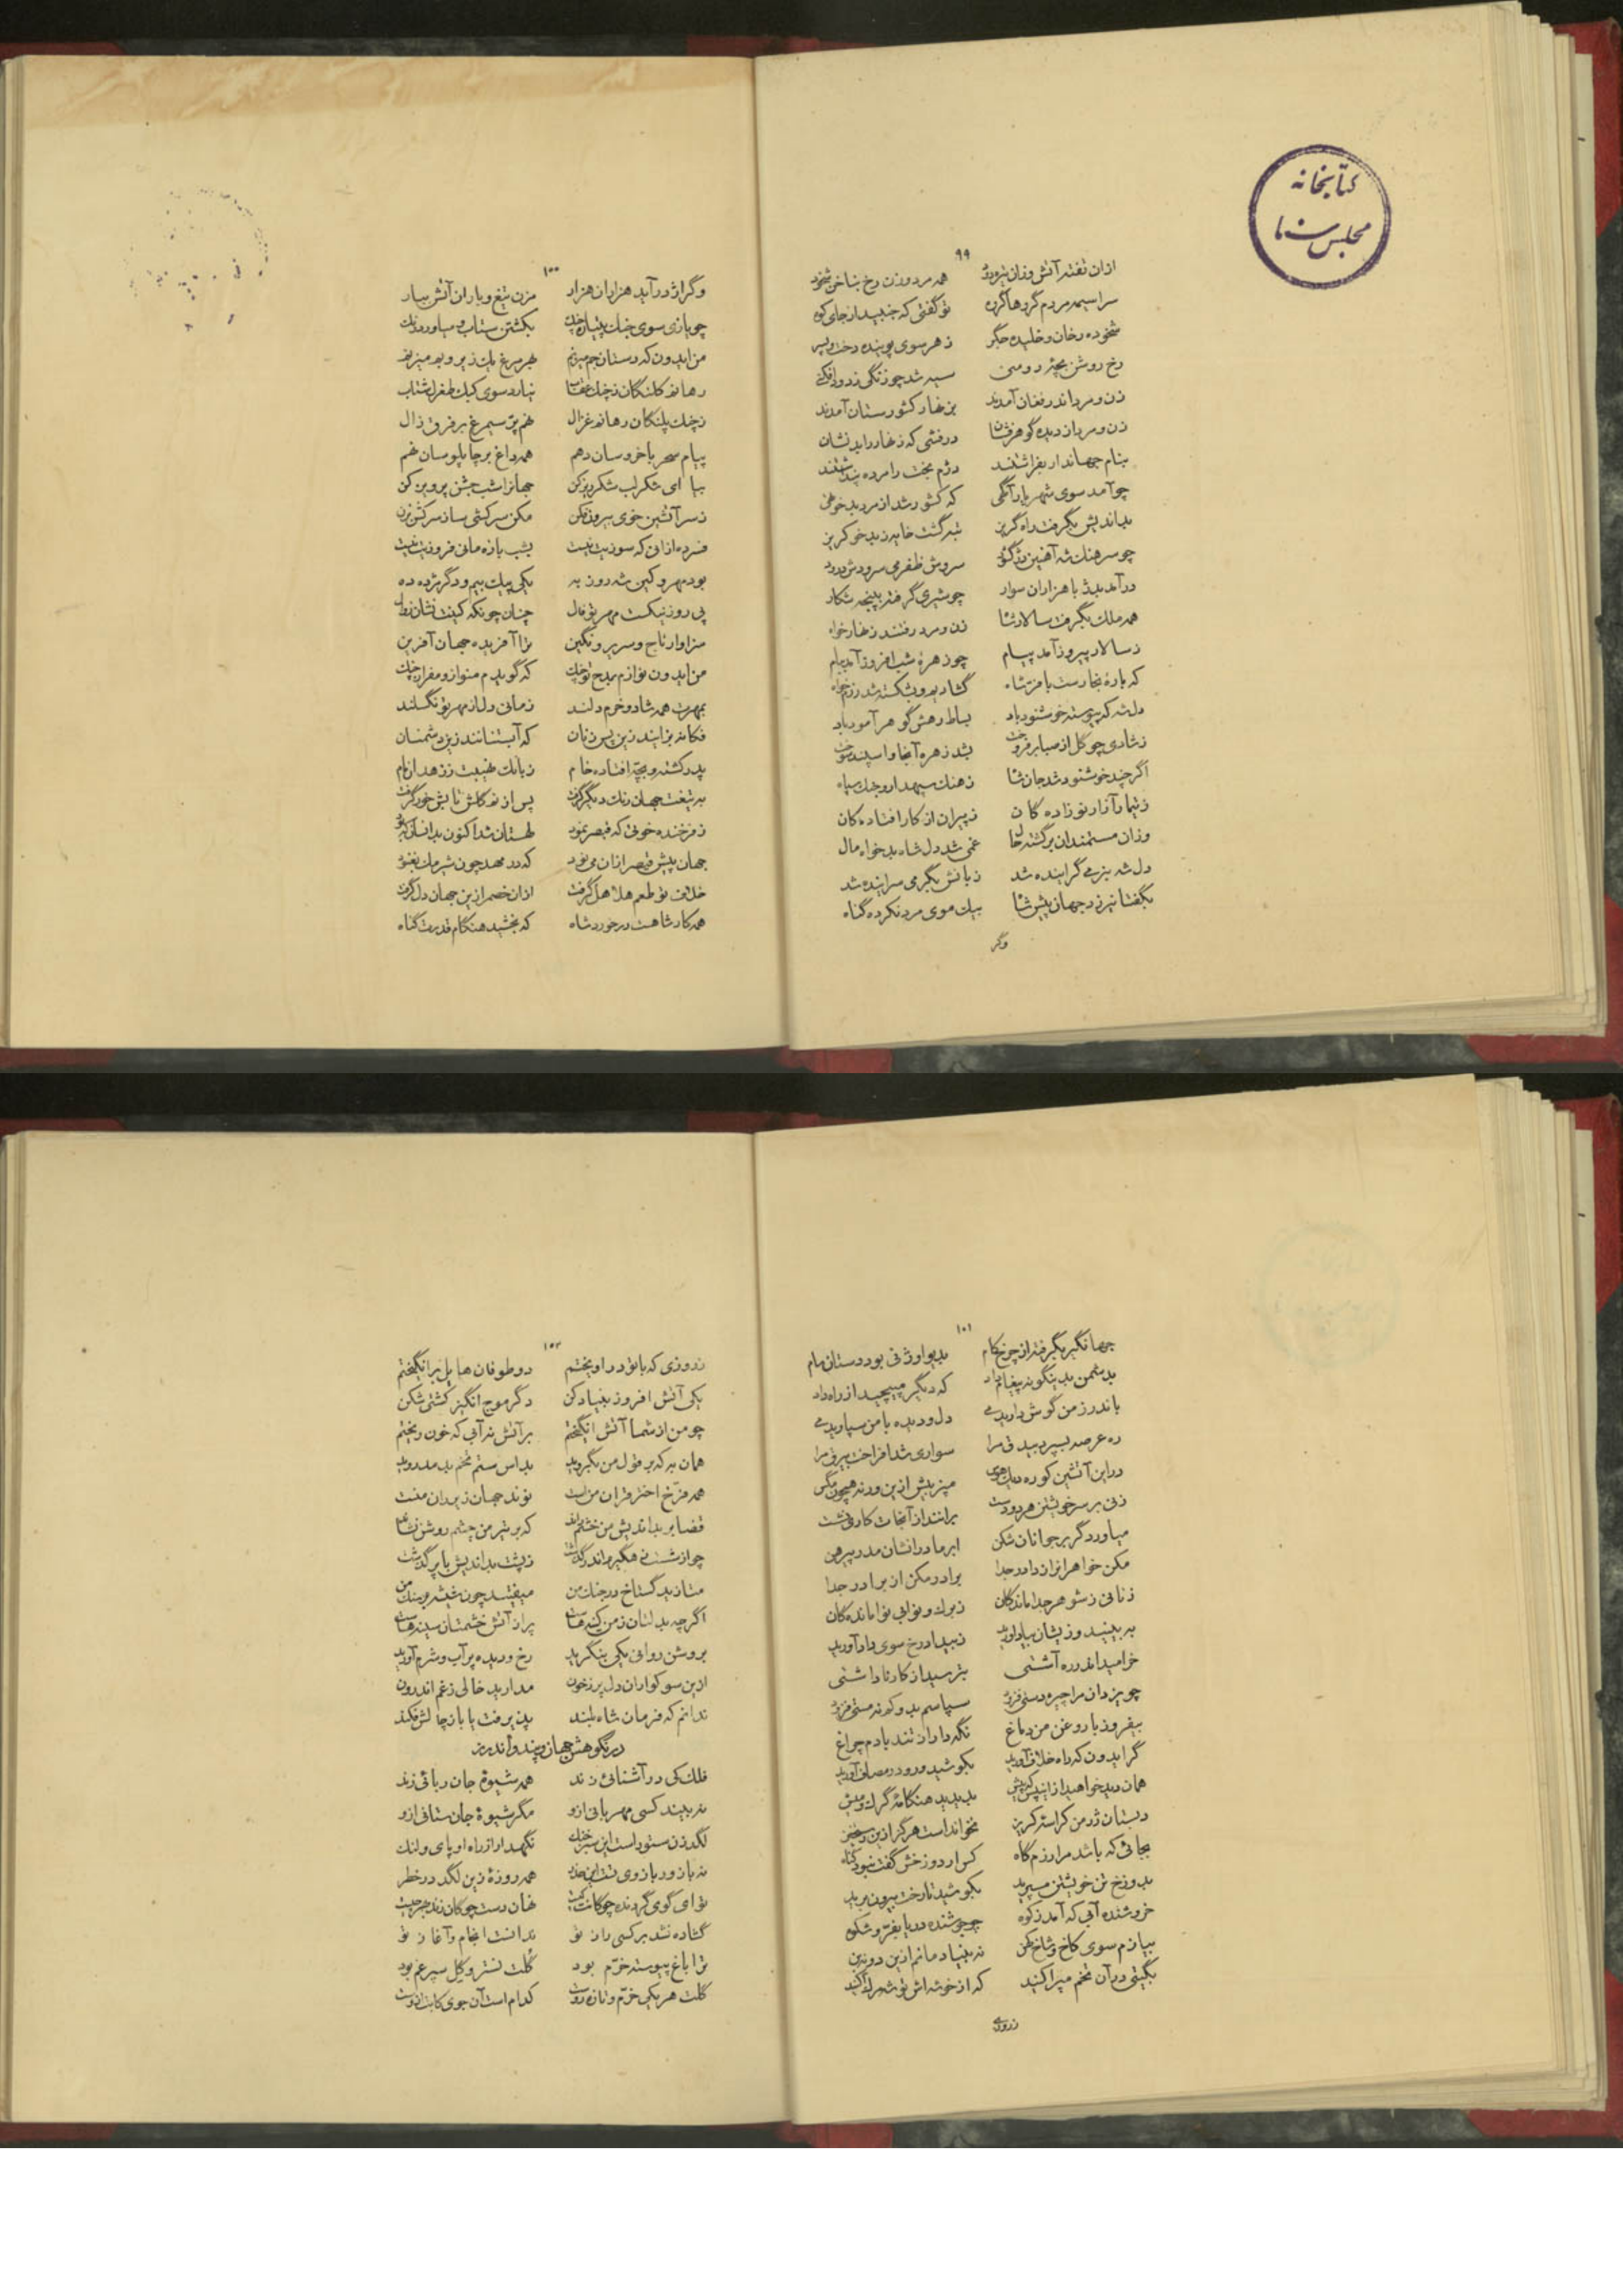 کتابخانه
مجلس سنا
۹۹
ازان تفته آتش وزان تیره دود همه مرد و زن رخ بناخن شخود
سراسیمه مردم گروها گروه تو گفتی که جنبید از جای کوه
شخوده رخان و خلیده جگر ز هر سوی پوینده دخت و پسر
رخ روشن بچه رومی سیه شد چو زنگی ز دود افکنی
زن و مرد اندر فغان آمدند بزنهار کشورستان آمدند
زن و مرد از دیده گوهرفشان درفشی که زنهار را بد نشان
بنام جهاندار بفراشتند دژم بخت را مرده پنداشتند
چو آمد سوی شهریار آگهی که کشور شد از مرد بدخو تهی
بداندیش بگرفت راه گریز تبه گشت خانه ز بدخو گریز
چو سرهنگ شه آهنین دژ گشود سروش ظفر می سرودش درود
درآمد بدژ با هزاران سوار چو شیری گرفته بپنجه شکار
همه ملک بگرفت سالار شا زن و مرد رفتند زنهارخواه
ز سالار پیروز آمد پیام چو زهره شب افروز آمد ببام
که باره نجا رست با فر شاه گشاد و شکسته شد رزمخواه
دل شه که پیوسته خوشنود باد بساط رهش گوهرآمود باد
ز شادی چو گل از صبا برفروخت بشد زهره آنجا و اسپند سوخت
اگر چند خوشنود شد جان شا ز هنگ سپهدار و جنگ سپاه
ز تیمار آزار نوزاده کان ز پیران از کار افتاده کان
وزان مستمندان برگشته حال غمی شد دل شاه بدخواه مال
دل شه بنرمی گراینده شد زبانش بگرمی سراینده شد
بگفتا نیرزد جهان پیش شا بیک موی مرد نکرده گناه
وگر
۱۰۰
وگر از در آید هزاران هزار مزن تیغ و باران آتش ببار
چو یازی سوی جنگ پتیاره چنگ بکشتن ستاب و میاور درنگ
من ایدون که دستان جم میزنم بهر مرغ یک زیر و بم میزنم
رها نه کلنگان ز چنگ عقاب نیارد سوی کبک طغرل شتاب
ز چنگ پلنگان رها نه غزال نهم پر سیمرغ بر فرق زال
پیام سحر با خروسان دهم همه داغ بر چاپلوسان نهم
بیا ای شکر لب شکرریز کن جهانرا شب جشن پرویز کن
ز سر آتشین خوی بیرون فکن مکن سرکشی ساز سرکش بزن
فسرده ازانی که سوزیت نیست بشب بازمانی فروزیت نیست
بود مهر و کین شه روز به یکی پیک بیم و دگر مژده ده
پی روز نیکست مهر تو فال چنان چونکه کینت نشان زوال
سزاوار تاج و سریر و نگین ترا آفریده جهان آفرین
من ایدون نوازم بمدح تو چنگ که گویدم منواز و مفراز چنگ
بمهرت همه شاد و خرم دلند زمانی دل از مهر تو نگسلند
فکانه بزایند زین پس زنان که آبستنانند زین دشمنان
پدر کشته و بچه افتاده خام زبانک نهیبت ز زهدان مام
به تیغت جهان رنگ دیگر گرفت پس از نه کلش تابش خور گرفت
ز فرخنده خوئی که قیصر نمود لهستان شد اکنون بدانسان که بود
جهان پیش قیصر ازان می نمود که در مهد چون شیر مک نغنود
خلاف تو طعم هلاهل گرفت ازان خصم ازین جهان دل گرفت
همه کار شاهست درخورد شاه که بخشید هنگام قدرت گناه
۱۰۱
جهانگیر بگرفته از چرخ کام بدیو اوژنی بود دستان سام
بدشمن بدینگونه پیغام داد که دیگر مپیچید از راه داد
باندرز من گوش دارید می دل و دیده با من سپارید می
ره عرصه بسپرد بیدق مرا سواری شد افراخت بیرق مرا
در این آتشین کوره دیک هوس مپز بیش ازین ورنه همچون مگس
زنی بر سر خویشتن هر دو دست برانند از آنجات کاری نشست
میاور دگر بر جوانان شکن ابر مادرانشان مدر پیرهن
مکن خواهرانرا ز دادر جدا برادر مکن از برادر جدا
زنانی ز شوهر جدا ماندگان ز برک و نوا بی نوا ماندگان
به بینید وزیشان بیاد آورید ز بیداد رخ سوی داد آورید
خرامید اندر ره آشتی بترسید از کار ناداشتی
چو یزدان مرا چیره دستی فزود سپاسم بدو که نه مستی فزود
بیفروز با روغن من دماغ نگه دار از تندبادم چراغ
گر ایدون که راه خلاف آورید بکوشید و رو در مصاف آورید
همان دید خواهید ازانپس که پیش بدیدید هنگامه گرگ و میش
دبستان ز درمن کراسه گریز نخوانداست هرگز ازین رستخیز
بجائی که باشد مرا رزم گاه کس ار دوزخش گفت نبود گناه
بدوزخ تن خویشتن مسپرید بکوشید تا رخت بیرون برید
خروشنده آبی که آمد ز کوه چو جوشنده دریا بفر و شکوه
بیازم سوی کاخ و شاخ کهن نه بنیاد مانم ازین دو نه بن
بگیتی در آن تخم میراکنید که از خوشه اش توشه مراکنید
زروی
۱۰۲
ز روزی که با تو در آویختم دو طوفان هایل برانگیختم
یکی آتش افروز بنیادکن دگر موج انگیز کشتی شکن
چو من از شما آتش انگیختم بر آتش نه آبی که خون ریختم
همان به که بر قول من بگروید بداس ستم تخم بد مدروید
همه فرخ اختر قران من است نوند جهان زیر ران منست
قضا بر بداندیش من خشم راند که بر تیر من چشم روشن نشاند
چو از شست هنگیرم اندر گذشت ز پشت بداندیش با پر گذشت
متازید گستاخ در جنگ من میفتید چون شیشه بر سنگ من
اگرچه بدلتان ز من کینه هاست پر از آتش خشمتان سینه هاست
بروشن روانی یکی بنگرید رخ و دیده پر آب و شرم آورید
ازین سوکواران دل پر ز خون مدارید خالی ز غم اندرون
ندانم که فرمان شاه بلند پذیرفت یا باز چالش فکند
در نکوهش جهان و پند و اندرز
فلک کی در آشنائی زند همه شیوه جان ربائی زند
نه بیند کسی مهربانی ازو مگر شیوه جان ستانی ازو
لگدزن ستور است این سبز خنگ نگهدار از راه او پای و لنگ
نه بازو ربازوی تست این حذر همه روزه زین لگد در خطر
تو ای گوی گردنده چوکانت کیست نهان دست چوکان زنت بهر چیست
گشاده نشد بر کسی راز تو ندانست انجام و آغاز تو
ترا باغ پیوسته خرم بود گلت نستر و گل سپرغم بود
گلت هر یکی خرم و تازه روست کدام است آن جوی کابت ازوست